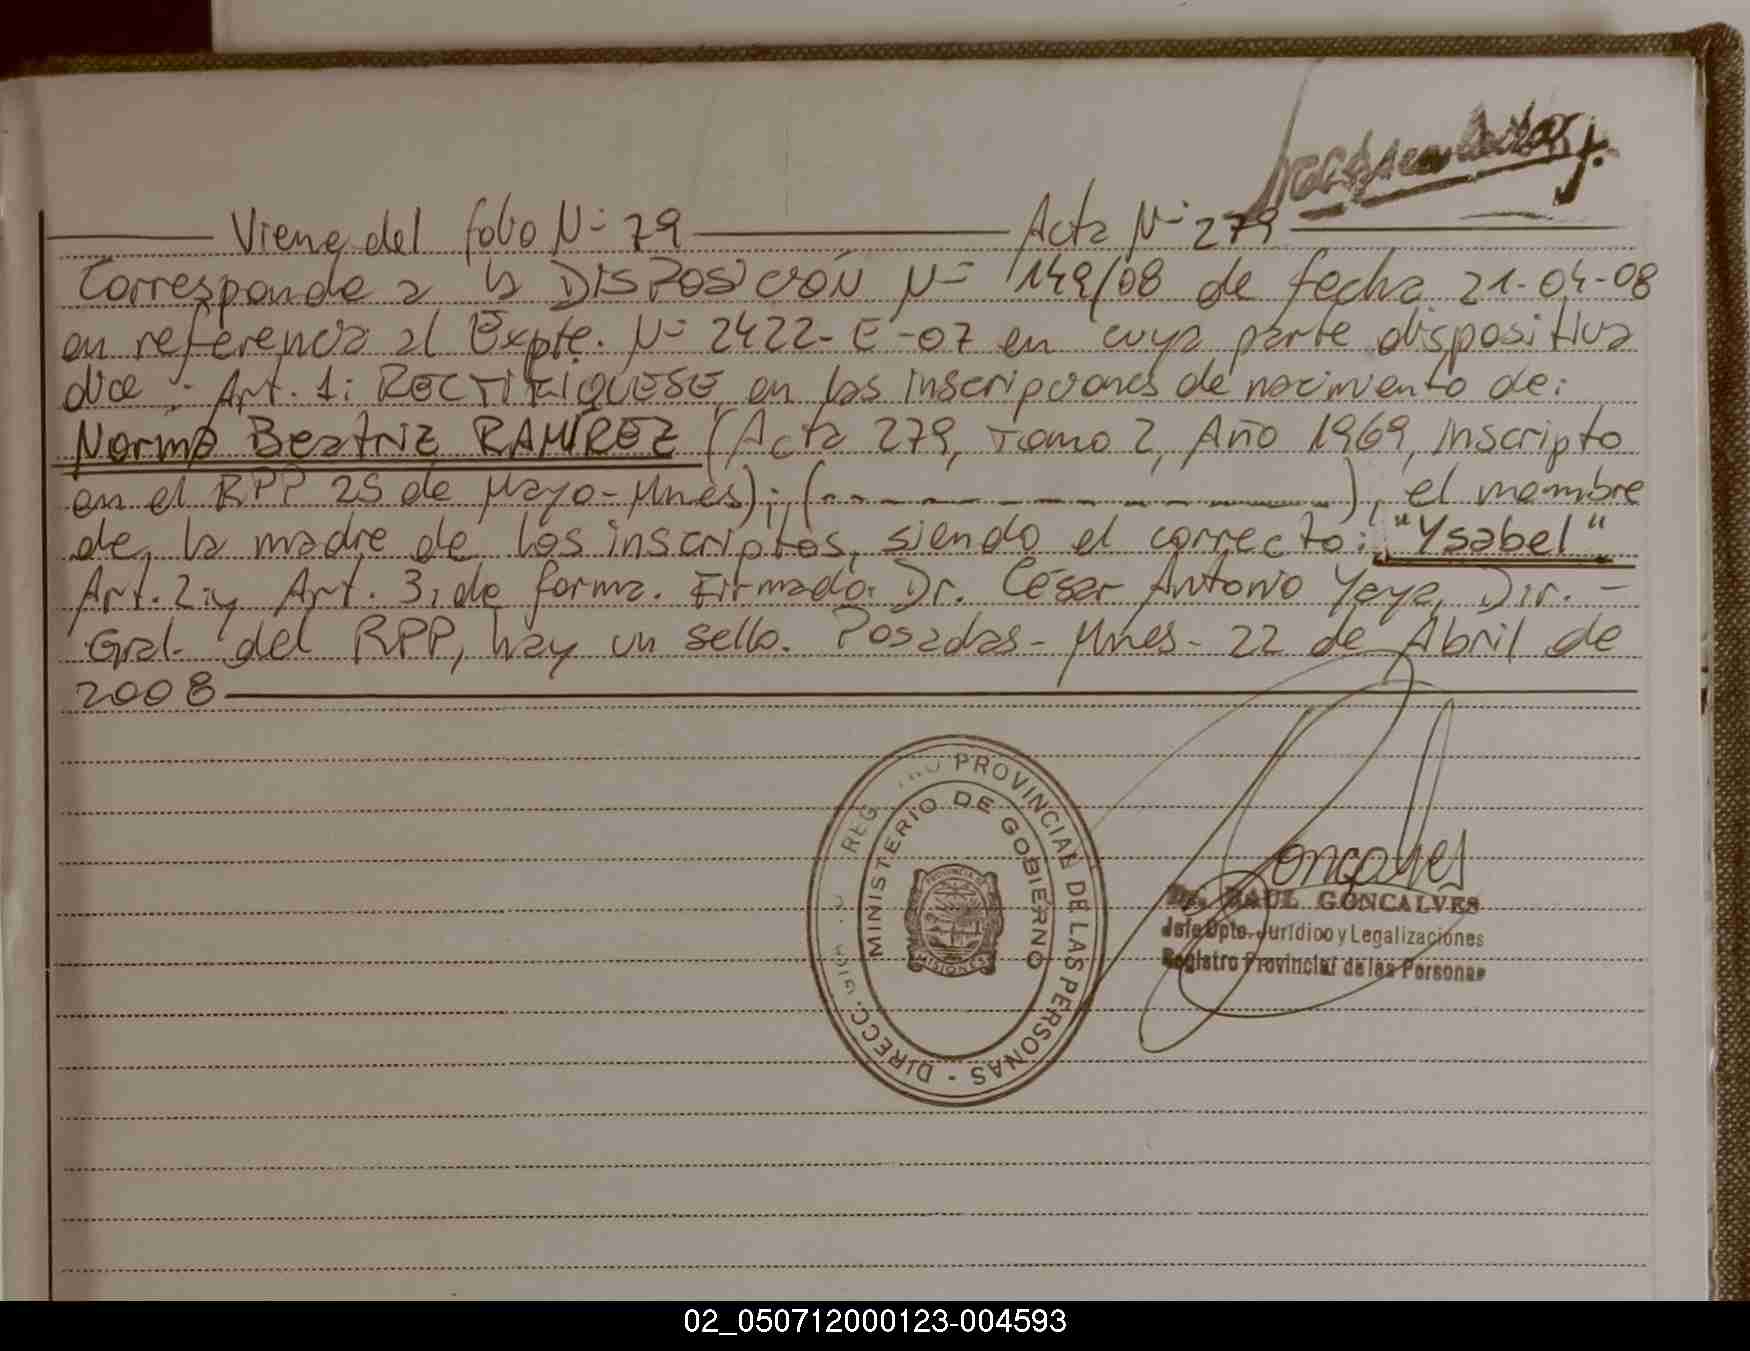 Viene del folio Nº 79 Acta Nº 279
Corresponde a la DISPOSICIÓN Nº 149/08 de fecha 21-04-08
en referencia al Expte. Nº 2422-E-07 en cuya parte dispositiva
dice: Art. 1: RECTIFIQUESE, en las inscripciones de nacimiento de:
Norma Beatriz RAMÍREZ (Acta 279, Tomo 2, Año 1969, inscripto
en el RPP 25 de Mayo-Mnes); (------------), el nombre
de la madre de los inscriptos, siendo el correcto: "Ysabel"
Art. 2: y Art. 3: de forma. Firmado: Dr. César Antonio Yaya, Dir. -
Gral. del RPP, hay un sello. Posadas - Mnes - 22 de Abril de
2008
DIRECC. REG PROVINCIAL DE LAS PERSONAS -
MINISTERIO DE GOBIERNO
PROVINCIA DE
MISIONES
Goncalves
Dr. RAUL GONCALVES
Jefe Dpto. Jurídico y Legalizaciones
Registro Provincial de las Personas
02_050712000123-004593